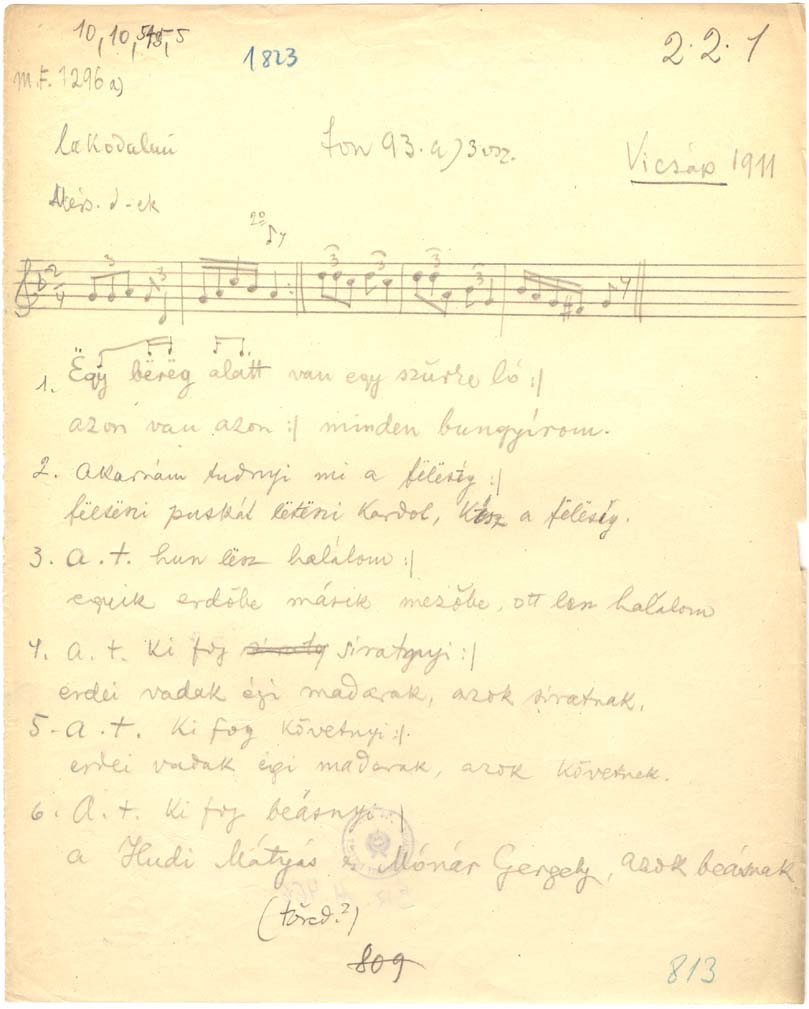 10, 10, 5, 5
1823
2.2.1
M.F. 1296 a)
lakodalmi
fon 93. a) 3 vsz.
Vicsáp 1911
d-ek
2º
2
4
3 3 3 3 3 3
1. Ëgy bërëg alatt van egy szürke ló :|
azon van azon :| minden bungyírom.
2. akarnám tudnyi mi a fëlësíg :|
fëltëni puskát lëtënni kardot, kész a fëlësíg.
3. a. t. hun lësz halálom :|
egyik erdőbe másik mezőbe, ott lesz halálom
4. a. t. ki fog siratnyi :|
erdei vadak égi madarak, azok siratnak.
5. a. t. ki fog követnyi :|
erdei vadak égi madarak, azok követnek.
6. A. t. ki fog beásnyi :|
a Hudi Mátyás s Mónár Gergely, azok beásnak
(töred.?)
809
813